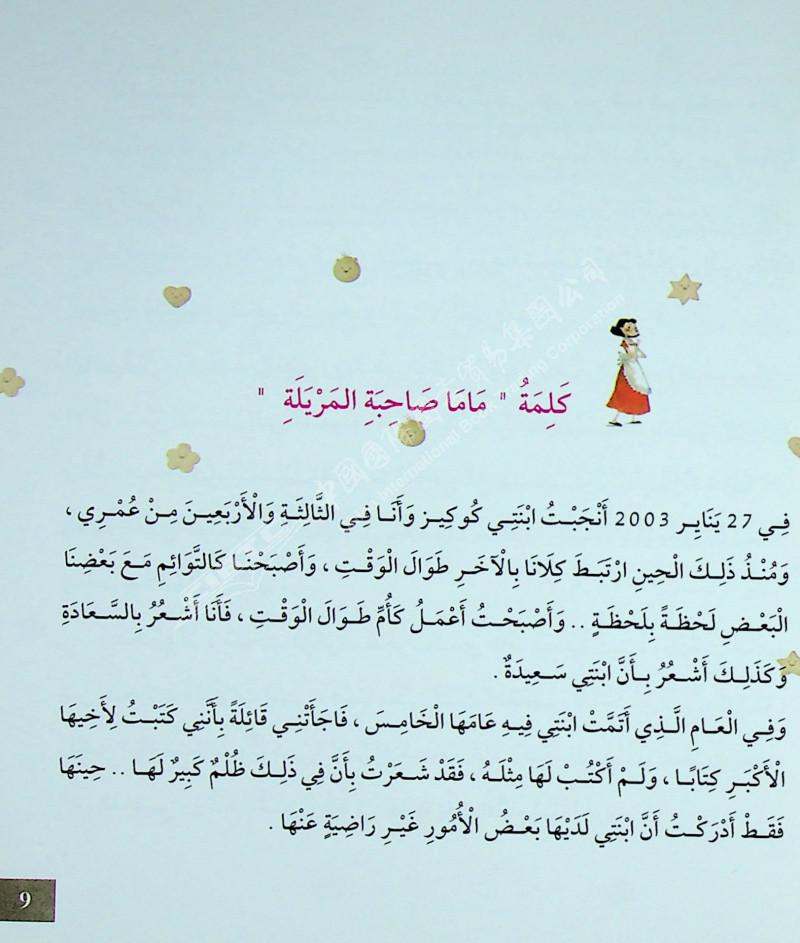 كَلِمَةُ " مَامَا صَاحِبَةِ المَرْيَلَةِ "
فِي 27 يَنَايِر 2003 أَنْجَبْتُ ابْنَتِي كُوكِيز وَأَنَا فِي الثَّالِثَةِ وَالْأَرْبَعِينَ مِنْ عُمْرِي ،
وَمُنْذُ ذَلِكَ الْحِينِ ارْتَبَطَ كِلَانَا بِالْآخَرِ طَوَالَ الْوَقْتِ ، وَأَصْبَحْنَا كَالتَّوَائِمِ مَعَ بَعْضِنَا
الْبَعْضِ لَحْظَةً بِلَحْظَةٍ .. وَأَصْبَحْتُ أَعْمَلُ كَأُمٍّ طَوَالَ الْوَقْتِ ، فَأَنَا أَشْعُرُ بِالسَّعَادَةِ
وَكَذَلِكَ أَشْعُرُ بِأَنَّ ابْنَتِي سَعِيدَةٌ .
وَفِي الْعَامِ الَّذِي أَتَمَّتْ ابْنَتِي فِيهِ عَامَهَا الْخَامِسَ ، فَاجَأَتْنِي قَائِلَةً بِأَنَّنِي كَتَبْتُ لِأَخِيهَا
الْأَكْبَرِ كِتَابًا ، وَلَمْ أَكْتُبْ لَهَا مِثْلَهُ ، فَقَدْ شَعَرَتْ بِأَنَّ فِي ذَلِكَ ظُلْمٌ كَبِيرٌ لَهَا .. حِينَهَا
فَقَطْ أَدْرَكْتُ أَنَّ ابْنَتِي لَدَيْهَا بَعْضُ الْأُمُورِ غَيْرِ رَاضِيَةٍ عَنْهَا .
9